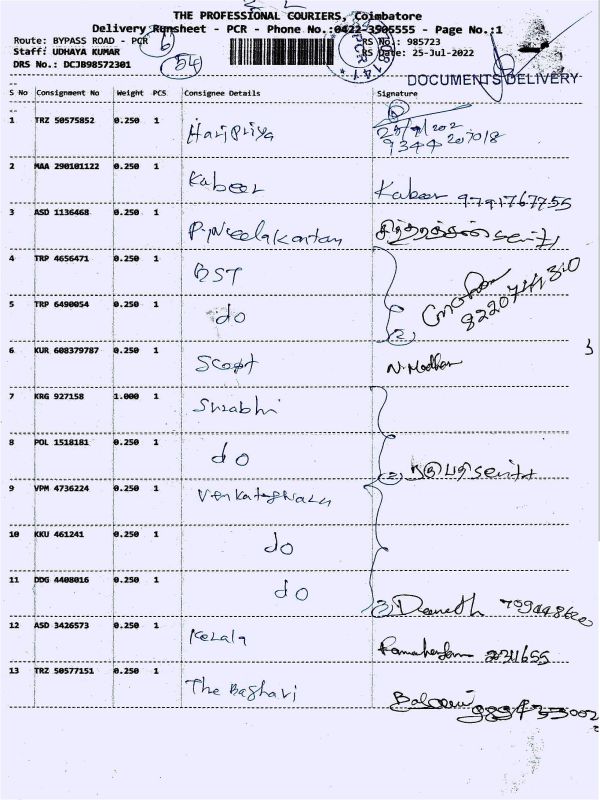 THE PROFESSIONAL COURIERS, Coimbatore
Delivery Runsheet - PCR - Phone No.:0422-3505555 - Page No.:1
Route: BYPASS ROAD - PCR
6
DRS No.: 985723
Staff: UDHAYA KUMAR
54
DRS Date: 25-Jul-2022
DRS No.: DCJB98572301
PCR
141
DOCUMENTS DELIVERY
S No Consignment No Weight PCS Consignee Details Signature
1 TRZ 50575852 0.250 1 Haripriya
2 MAA 290101122 0.250 1 Kabeer Kabeer 9791767755
3 ASD 1136468 0.250 1 P. Neelakantan
4 TRP 4656471 0.250 1 BST
5 TRP 6490054 0.250 1 do (2)
6 KUR 608379787 0.250 1 Scoot N. Madhan
7 KRG 927158 1.000 1 Surabhi
8 POL 1518181 0.250 1 do (2)
9 VPM 4736224 0.250 1 Venkateshwara
10 KKU 461241 0.250 1 do
11 DDG 4408016 0.250 1 do (3)
12 ASD 3426573 0.250 1 Kerala 2311655
13 TRZ 50577151 0.250 1 The Baghavi